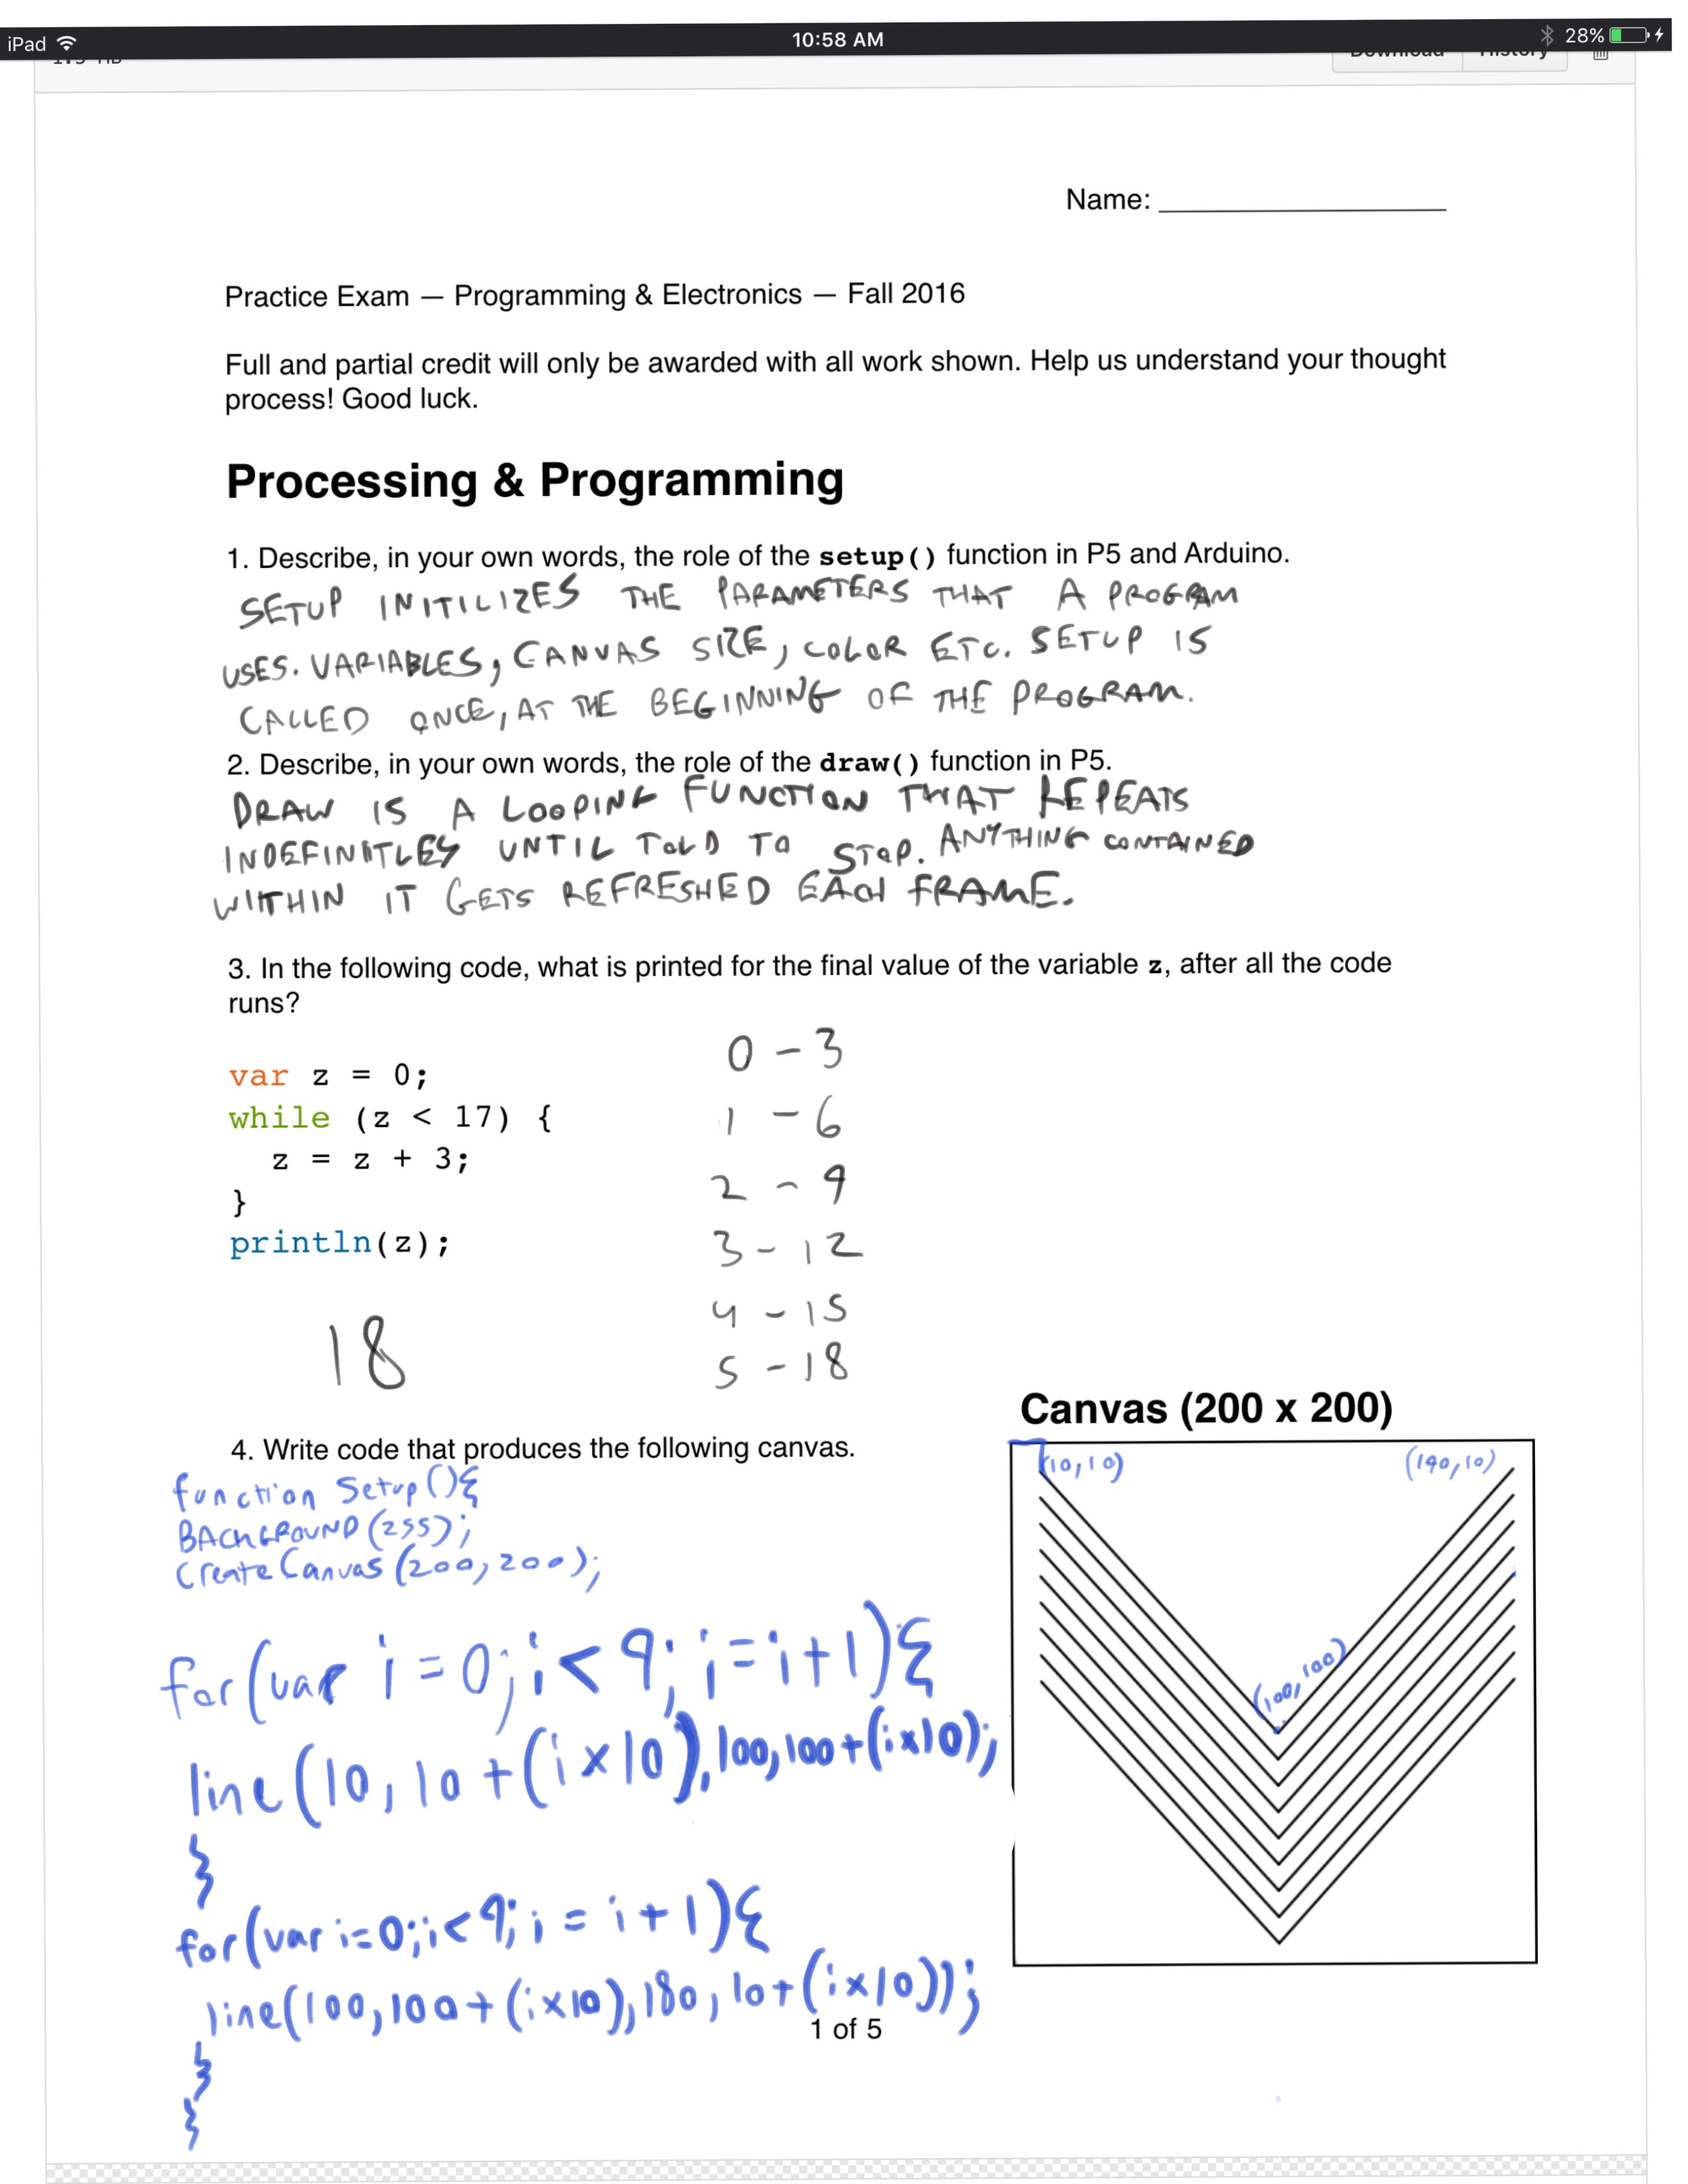 iPad
10:58 AM
28%
Download History
Name:
Practice Exam — Programming & Electronics — Fall 2016
Full and partial credit will only be awarded with all work shown. Help us understand your thought
process! Good luck.
Processing & Programming
1. Describe, in your own words, the role of the setup() function in P5 and Arduino.
SETUP INITILIZES THE PARAMETERS THAT A PROGRAM
USES. VARIABLES, CANVAS SIZE, COLOR ETC. SETUP IS
CALLED ONCE, AT THE BEGINNING OF THE PROGRAM.
2. Describe, in your own words, the role of the draw() function in P5.
DRAW IS A LOOPING FUNCTION THAT REPEATS
INDEFINITLEY UNTIL TOLD TO STOP. ANYTHING CONTAINED
WITHIN IT GETS REFRESHED EACH FRAME.
3. In the following code, what is printed for the final value of the variable z, after all the code
runs?
var z = 0;
while (z < 17) {
z = z + 3;
}
println(z);
18
0 - 3
1 - 6
2 - 9
3 - 12
4 - 15
5 - 18
4. Write code that produces the following canvas.
function Setup(){
BACKGROUND(255);
createCanvas(200,200);
for(var i = 0; i < 9; i = i + 1){
line(10, 10 + (i x 10), 100, 100 + (i x 10);
}
for(var i = 0; i < 9; i = i + 1){
line(100, 100 + (i x 10), 180, 10 + (i x 10));
}
}
Canvas (200 x 200)
(10,10)
(190,10)
(100,100)
1 of 5